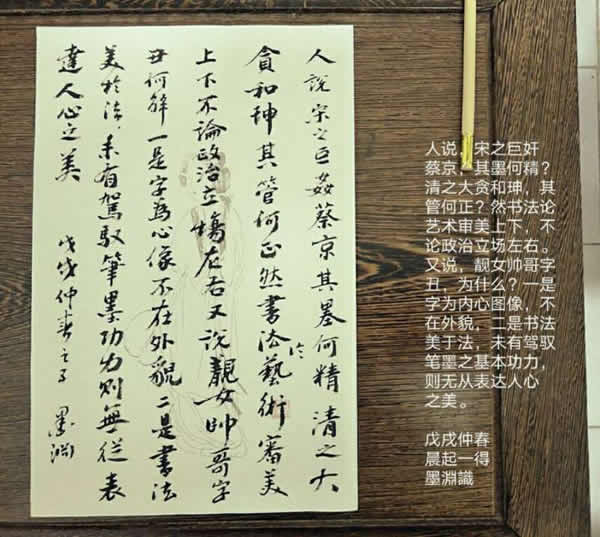 人說宋之巨姦蔡京其墨何精清之大
貪和珅其管何正然書法论藝術審美
上下不論政治立場左右又說靚女帥哥字
丑何解一是字為心像不在外貌二是書法
美於法、未有駕馭筆墨功力則無從表
達人心之美 戊戌仲春之 墨渊
人说，宋之巨奸
蔡京，其墨何精？
清之大贪和珅，其
管何正？然书法论
艺术审美上下，不
论政治立场左右。
又说，靓女帅哥字
丑，为什么？一是
字为内心图像，不
在外貌，二是书法
美于法，未有驾驭
笔墨之基本功力，
则无从表达人心
之美。
戊戌仲春
晨起一得
墨淵識